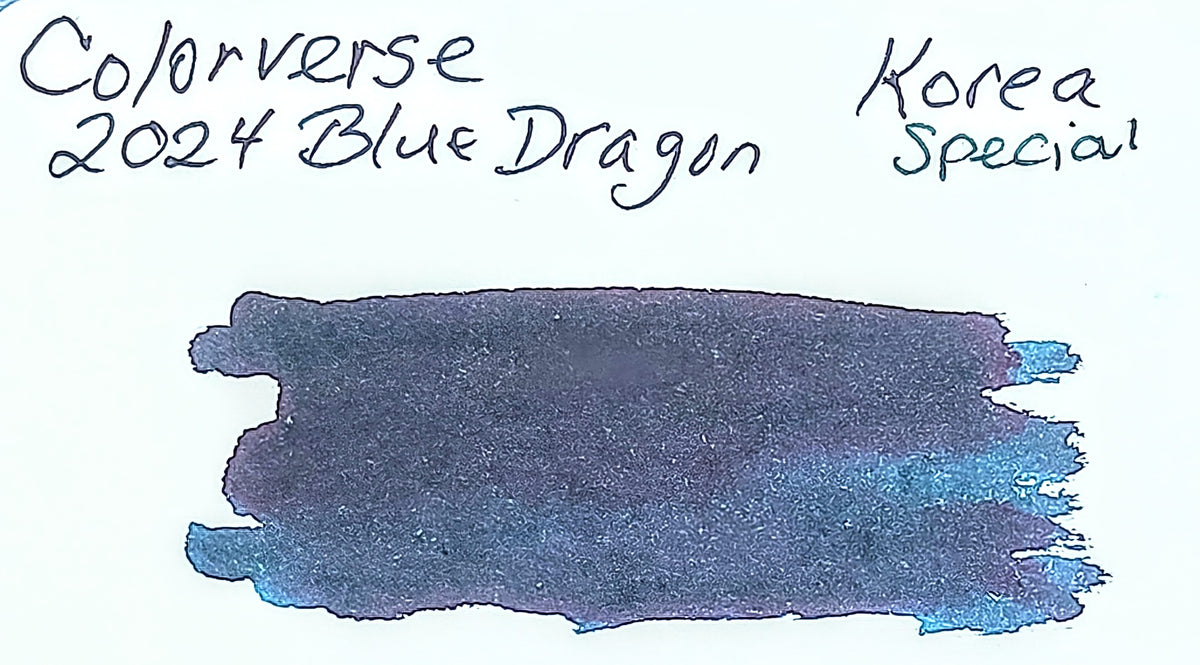 Colorverse
2024 Blue Dragon
Korea
Special